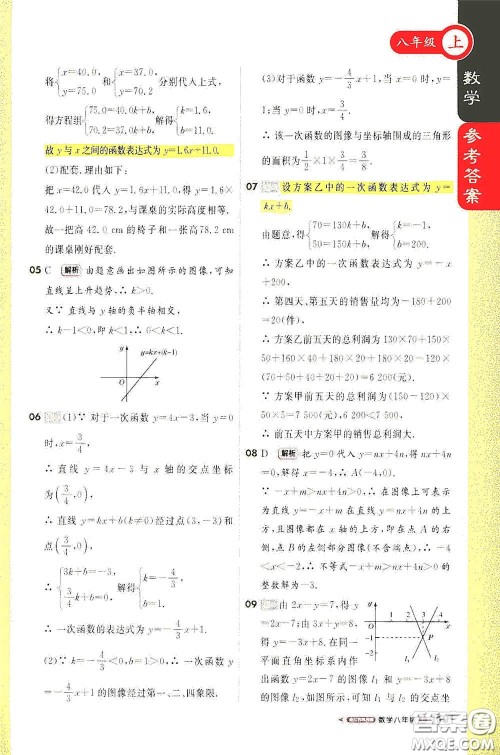 八年级 上
数学
参考答案
{x=40.0, y=75.0 和 {x=37.0, y=70.2 分别代入上式，
得方程组{75.0=40.0k+b, 70.2=37.0k+b, 解得{k=1.6, b=11.0.
故 y 与 x 之间的函数表达式为 y=1.6x+11.0.
(2)配套. 理由如下：
把 x=42.0 代入 y=1.6x+11.0，得 y=1.6
×42.0+11.0=78.2，与课桌的实际高度相符.
故一把高 42.0 cm 的椅子和一张高 78.2 cm
的课桌刚好配套.
05 C 解析 由题意画出如图所示的图像，可知
直线呈上升趋势，∴k>0.
又∵直线与 y 轴的负半轴相交，
∴k-1<0，即 k<1，∴0<k<1.
y
y=kx+(k-1)
O x
06 (1)∵对于一次函数 y=4x-3，当 y=0
时，x=3/4，
∴直线 y=4x-3 与 x 轴的交点坐标
为(3/4, 0).
∵直线 y=kx+b(k≠0)经过点(3，-3)和
点(3/4, 0)，
∴{3k+b=-3, 3/4k+b=0, 解得{k=-4/3, b=1.
∴一次函数的表达式为 y=-4/3x+1.
(2)∵k=-4/3<0，b=1>0，∴一次函数
的图像经过第一、二、四象限.
(3)对于函数 y=-4/3x+1，当 y=0 时，x=
3/4，
∴该一次函数的图像与坐标轴围成的三角形
的面积为1/2×1×3/4=3/8.
07 设方案乙中的一次函数表达式为 y=
kx+b.
由题意，得{70=130k+b, 50=150k+b, 解得{k=-1, b=200.
∴方案乙中的一次函数表达式为 y=-x
+200，
∴第四天、第五天的销售量均为-180+200
=20(件)，
∴方案乙前五天的总利润为 130×70+150×
50+160×40+180×20+180×20-120×(70+
50+40+20+20)=6 200(元).
∵方案甲前五天的总利润为(150-120)×
50×5=7 500(元)，6 200<7 500，
∴前五天中方案甲的总利润大.
08 D 解析 把 y=0 代入 y=nx+4n，得 nx+4n
=0，解得 x=-4，∴A(-4，0).
∵-x+m>nx+4n>0，∴在图像上可表示
为直线 y=-x+m 在直线 y=nx+4n 的上
方，且图像都在 x 轴的上方，即点 A 的右侧，
点 B 的左侧部分图像(不含端点)，∴-4
<x<-2，∴不等式-x+m>nx+4n>0 的
整数解为-3.
09 由 2x-y=7，得 y=
2x-7；由 3x+y=8，得 y=
-3x+8. 在同一平面
直角坐标系内画出一次
函数 y=2x-7 的图像 l1
和 y=-3x+8 的图像 l2，
y
O 1 2 3 4 x
-1
-2
P
l2 l1
数学八年级